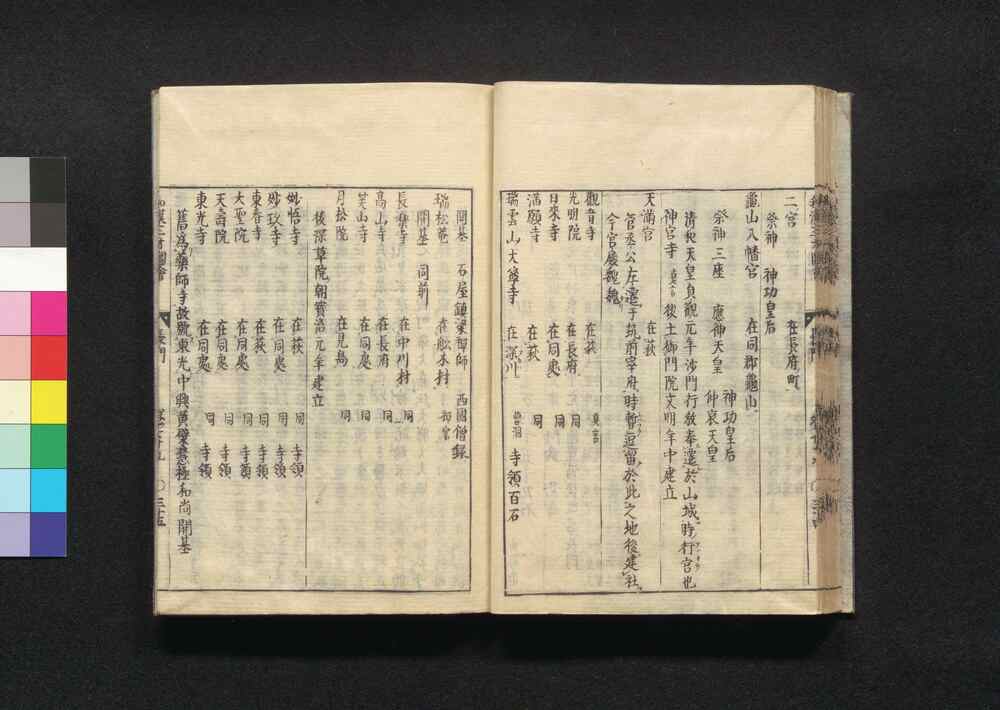 二宮 在長府町
祭神 神功皇后
龜山八幡宮 在同郡龜山
祭神三座 應神天皇 神功皇后 仲哀天皇
清和天皇貞觀元年沙門行教奉遷於山城時行宮也
神宮寺 真言 後土御門院文明年中建立
天滿宮 在萩
菅丞公左遷于筑前宰府時暫逗留於此之地後建社
今宮殿巍巍
觀音寺 在萩 真言
光明院 在長府 同
日來寺 在同處 同
滿願寺 在萩 同
瑞雲山大寧寺 在深川 曹洞 寺領百石
開基 石屋鎮梁禪師 西國僧錄
瑞松菴 在船木村
開基 同前
長樂寺 在中川村 同
高山寺 在長府 同
笑山寺 在同處 同
月松院 在見嶌 同
後深草院朝寶治元年建立
妙悟寺 在萩 同 寺領
妙玖寺 在同處 同 寺領
東春寺 在萩 同 寺領
大聖院 在同處 同 寺領
天壽院 在同處 同 寺領
東光寺 在同處 同 寺領
舊爲藥師寺故號東光中興黃檗慧極和尚開基
長門 三五